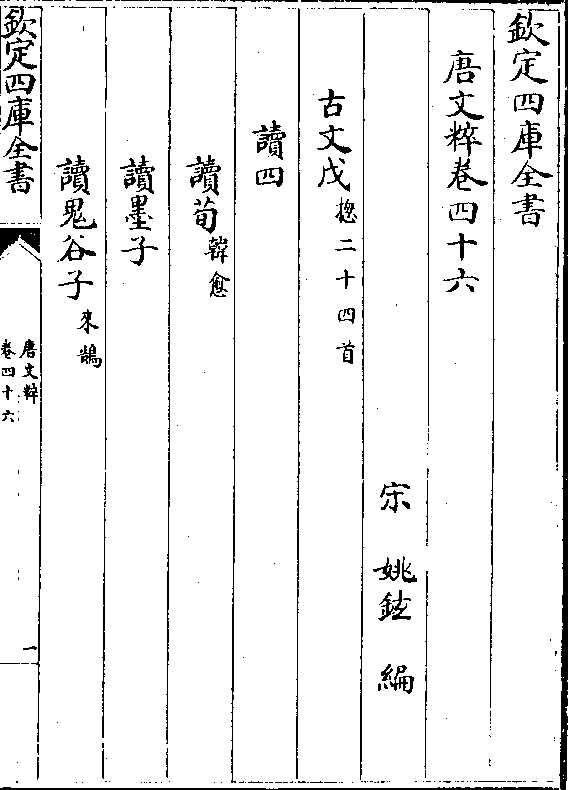 欽定四庫全書
唐文粹卷四十六
宋 姚鉉 編
古文戊 揔二十四首
讀四
讀荀 韓愈
讀墨子
讀鬼谷子 來鵠
欽定四庫全書
唐文粹
卷四十六
一